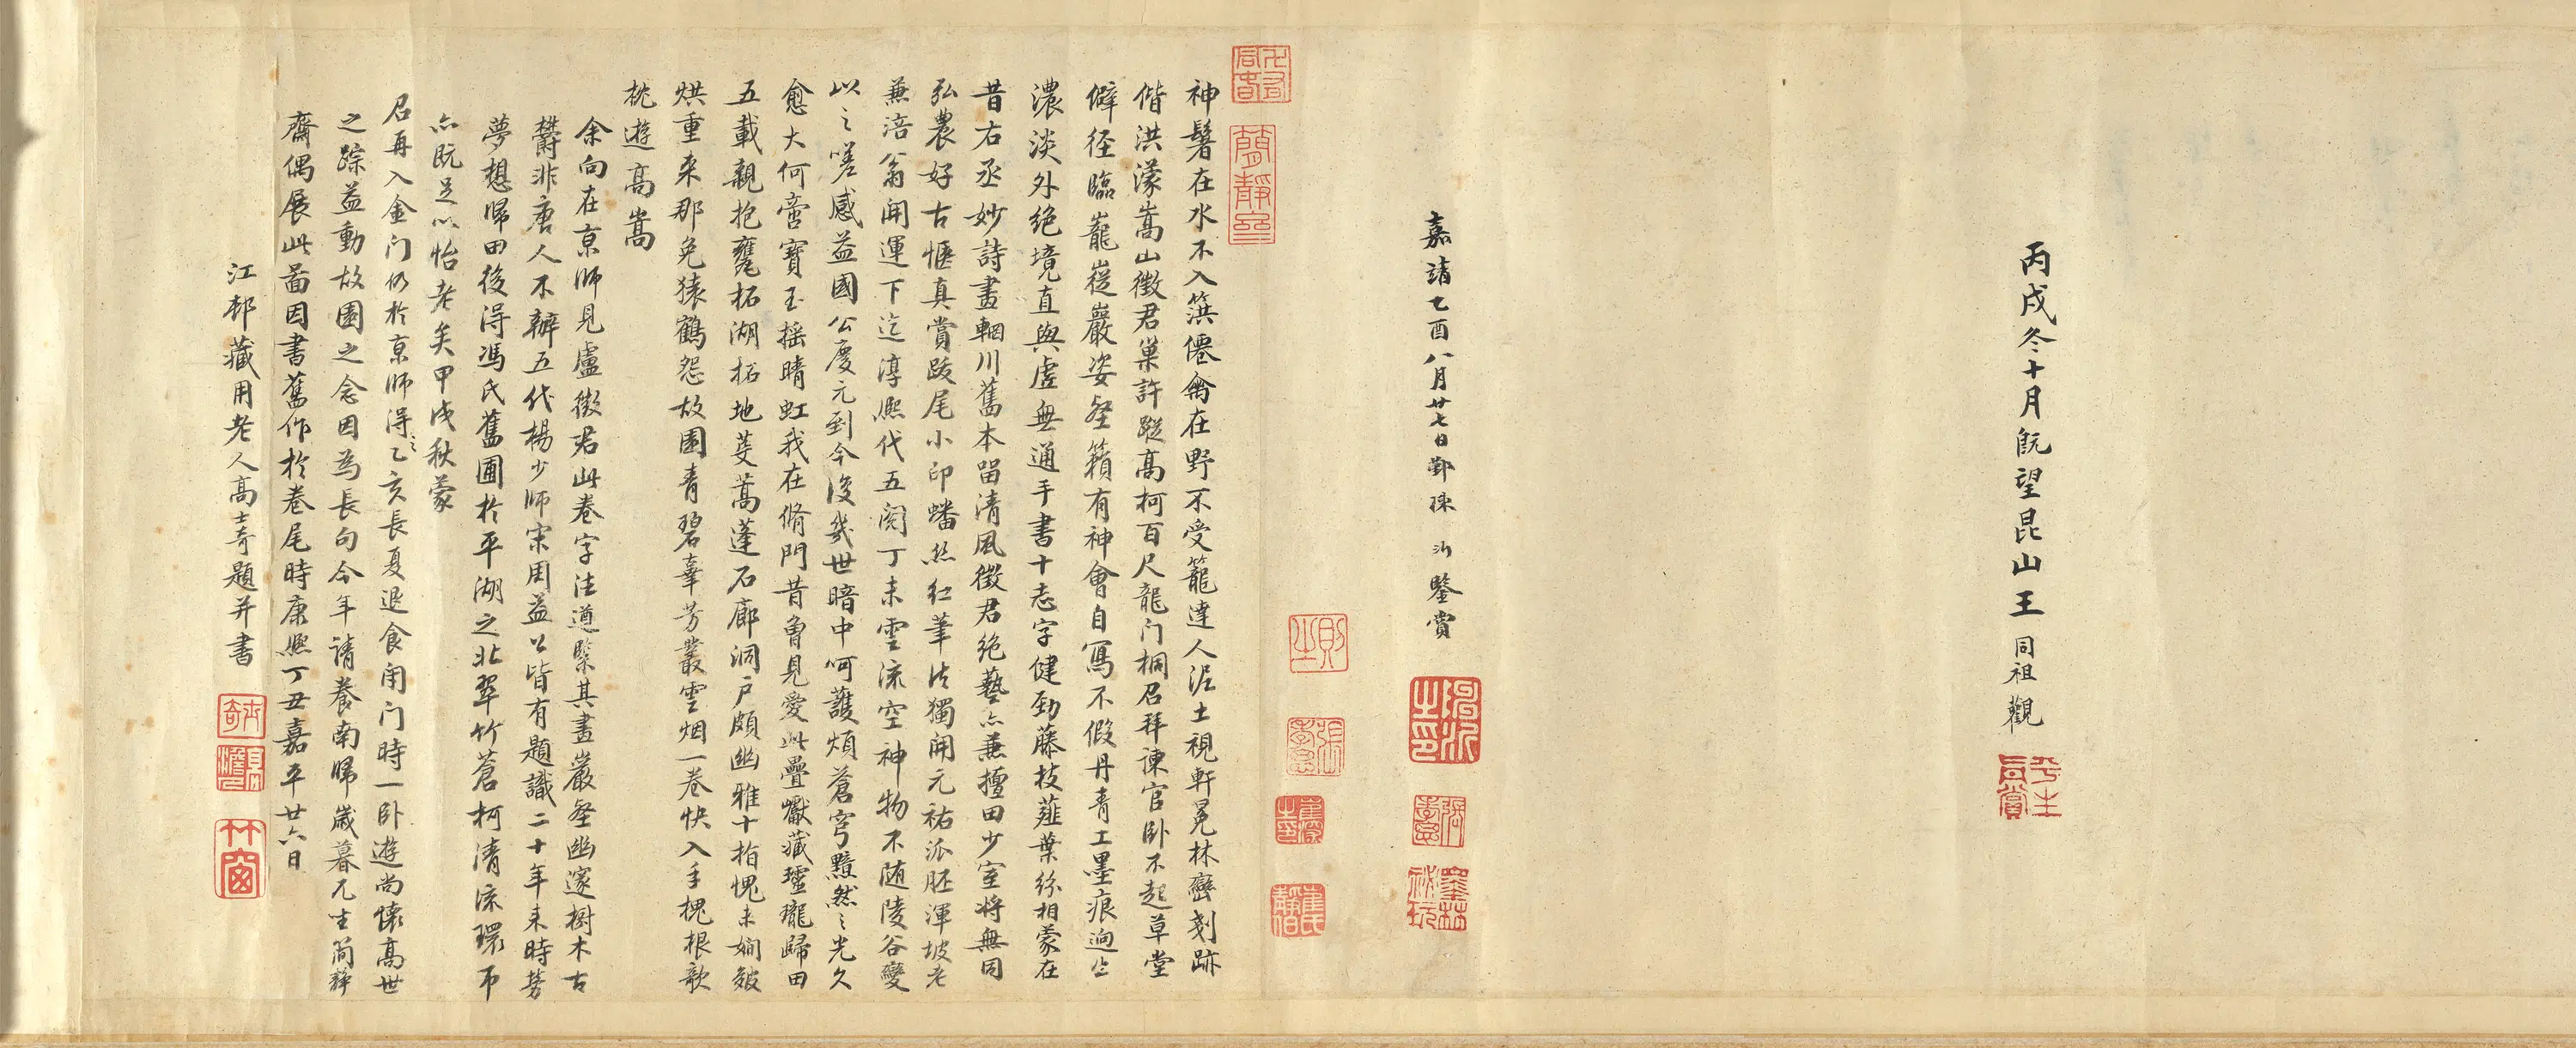 丙戌冬十月既望昆山王同祖觀
嘉靖乙酉八月廿七日鄞陳沂鑒賞
神鬐在水不入篊僊禽在野不受籠達人泥土視軒冕林巒剗跡
偕洪濛嵩山徵君巢許蹤高柯百尺龍门桐召拜諫官卧不起草堂
僻径臨巃嵸巖姿壑籟有神會自寫不假丹青工墨痕迥出
濃淡外绝境直與虛無通手書十志字健勁藤枝薤葉紛相蒙在
昔右丞妙詩畫輞川舊本留清風徵君绝藝亦兼擅田少室将無同
弘農好古愜真賞跋尾小印蟠丝红筆法獨開元祐派胚渾坡老
兼涪翁開運下迄淳熈代五閲丁未雲流空神物不随陵谷變
以之嗟感益國公慶元到今復幾世暗中呵護煩蒼穹黯然之光久
愈大何啻寳玉摇晴虹我在脩門昔曾見愛此疊巘藏瓏瓏歸田
五載親抱甕柘湖拓地芟蒿蓬石廊洞户頗幽雅十拍愧未嫺皴
烘重来那免猿鶴怨故園青碧辜芳叢雲烟一卷快入手槐根欹
枕遊高嵩
余向在京師見盧徵君此卷字法遒緊其畫巖壑幽邃樹木古
欝非唐人不辦五代楊少師宋周益公皆有題識二十年来時勞
夢想歸田後淂馮氏舊圃於平湖之北翠竹蒼柯清流環帀
亦既足以怡老矣甲戌秋蒙
召再入金门仍於京師淂之乙亥長夏退食閉门時一卧遊尚懷高世
之踪益動故園之念因為長句今年请養南歸歲暮兀坐簡靜
齋偶展此畵因書舊作於卷尾時康熈丁丑嘉平廿六日
江邨藏用老人高士奇題并書